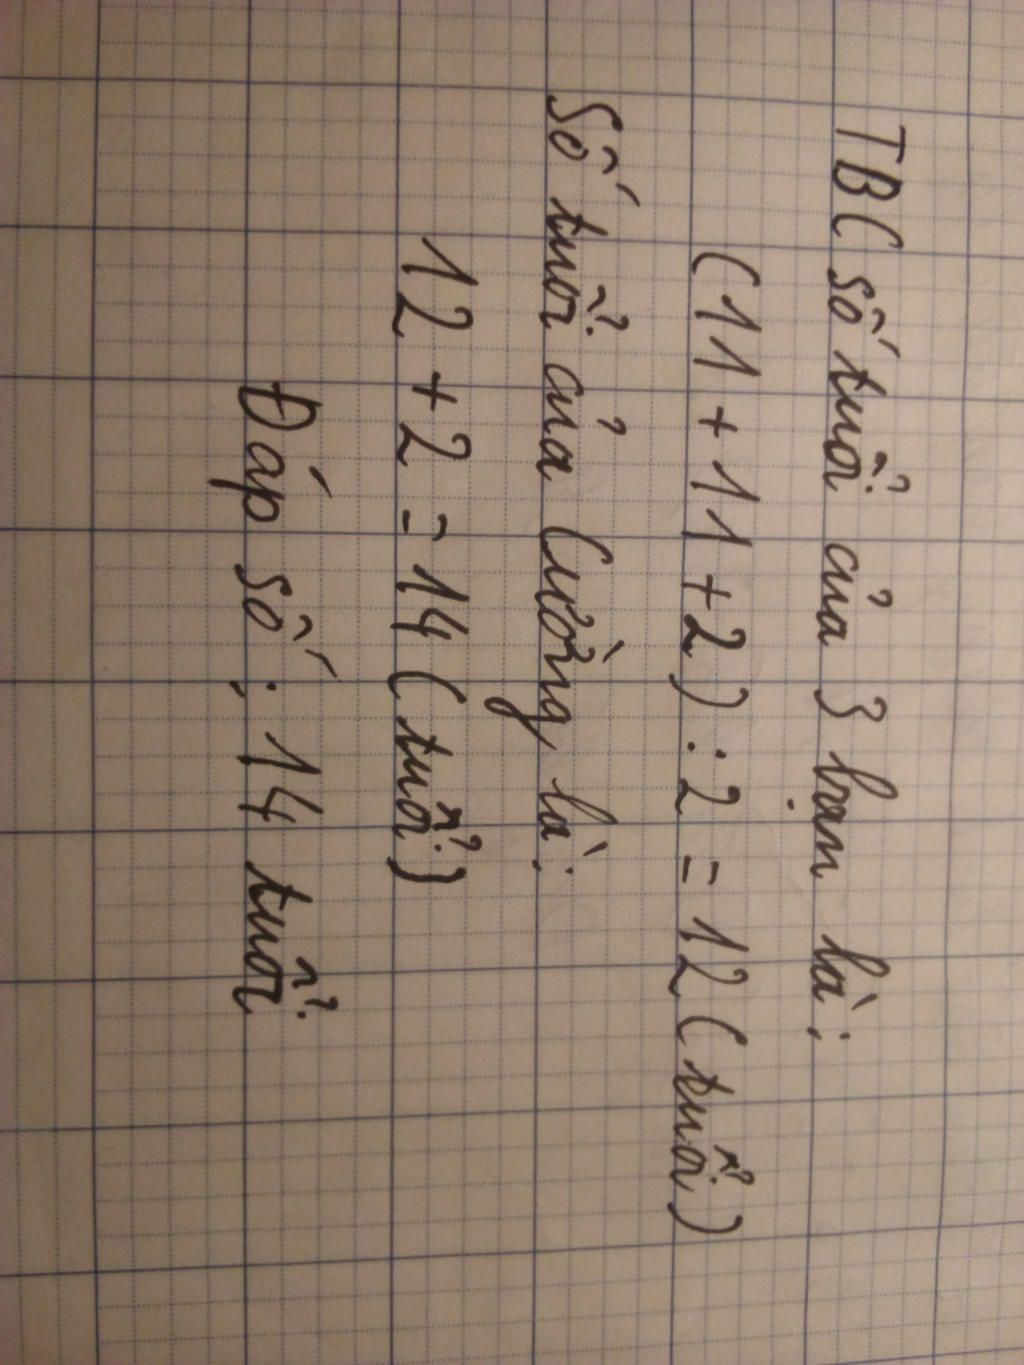 TBC số tuổi của 3 bạn là:
(11 + 11 + 2) : 2 = 12 (tuổi)
Số tuổi của Cường là:
12 + 2 = 14 (tuổi)
Đáp số : 14 tuổi